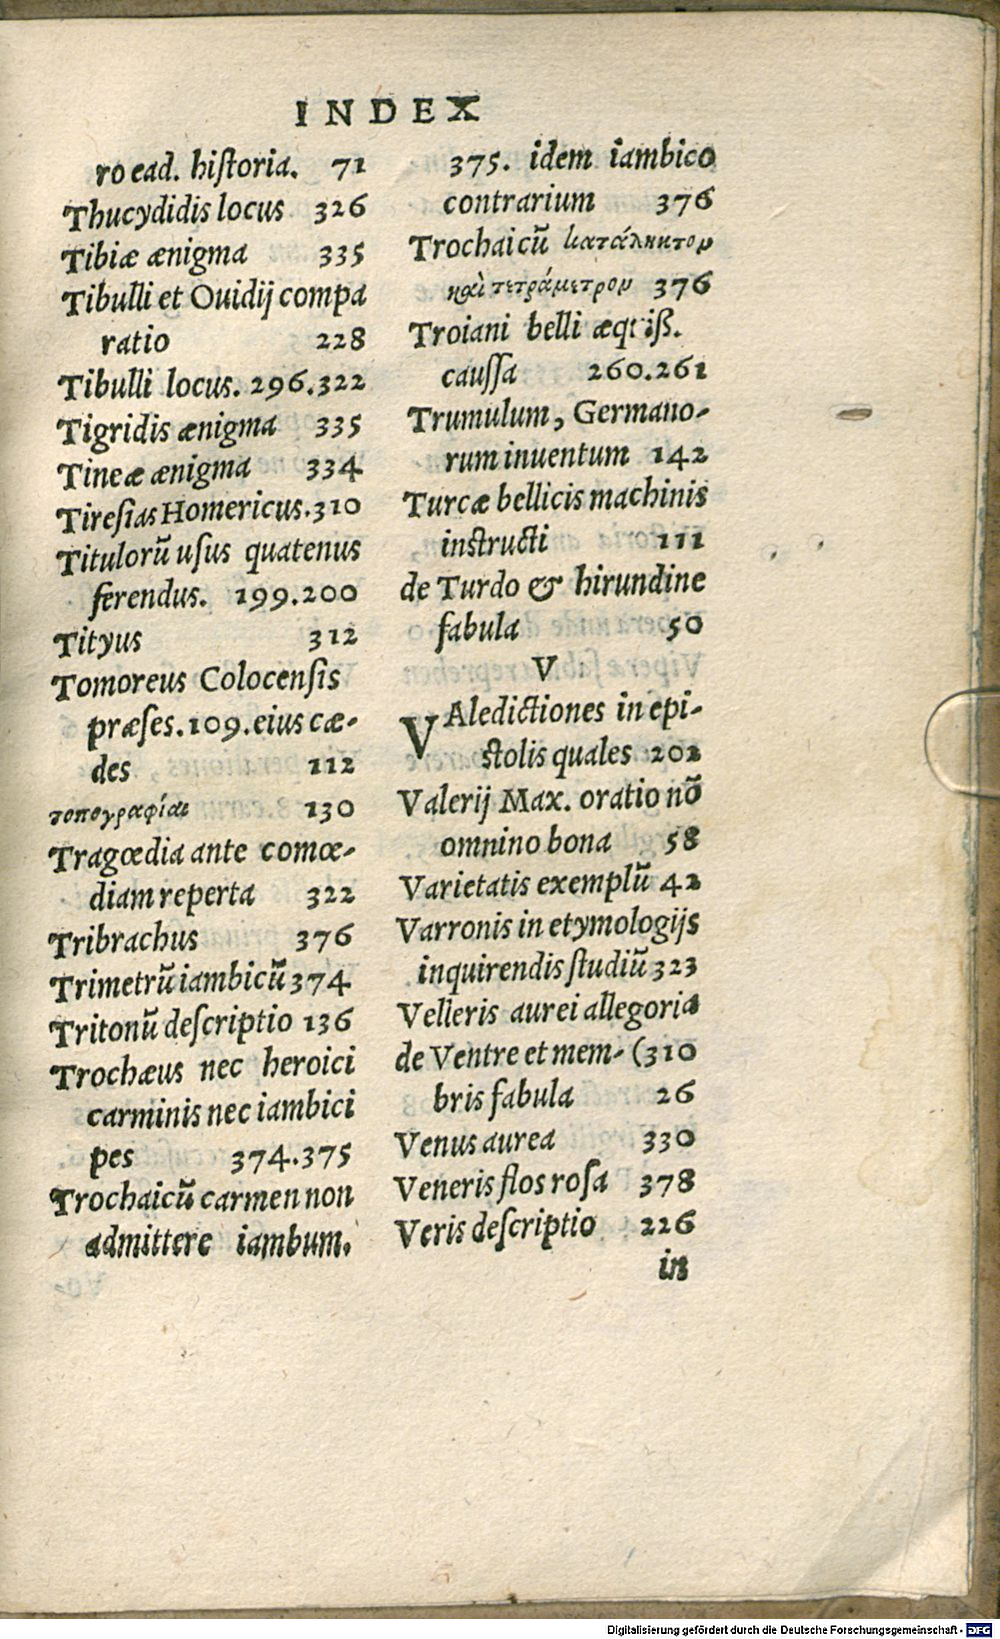 INDEX
ro ead. hiſtoria. 71
Thucydidis locus 326
Tibiæ ænigma 335
Tibulli et Ouidij compa
ratio 228
Tibulli locus. 296.322
Tigridis ænigma 335
Tineæ ænigma 334
Tireſias Homericus.310
Titulorũ uſus quatenus
ferendus. 199.200
Tityus 312
Tomoreus Colocenſis
præſes.109.eius cæ-
des 112
τοπογραφίαι 130
Tragœdia ante comœ-
diam reperta 322
Tribrachus 376
Trimetrũ iambicũ 374
Tritonũ deſcriptio 136
Trochæus nec heroici
carminis nec iambici
pes 374.375
Trochaicũ carmen non
admittere iambum.
375. idem iambico
contrarium 376
Trochaicũ κατάληκτον
καὶ τετράμετρον 376
Troiani belli æquiß.
cauſſa 260.261
Trumulum, Germano-
rum inuentum 142
Turcæ bellicis machinis
inſtructi 111
de Turdo & hirundine
fabula 50
V
VAledictiones in epi-
ſtolis quales 202
Valerij Max. oratio nõ
omnino bona 58
Varietatis exemplũ 42
Varronis in etymologijs
inquirendis ſtudiũ 323
Velleris aurei allegoria
de Ventre et mem- (310
bris fabula 26
Venus aurea 330
Veneris flos roſa 378
Veris deſcriptio 226
in
Digitalisierung gefördert durch die Deutsche Forschungsgemeinschaft - DFG